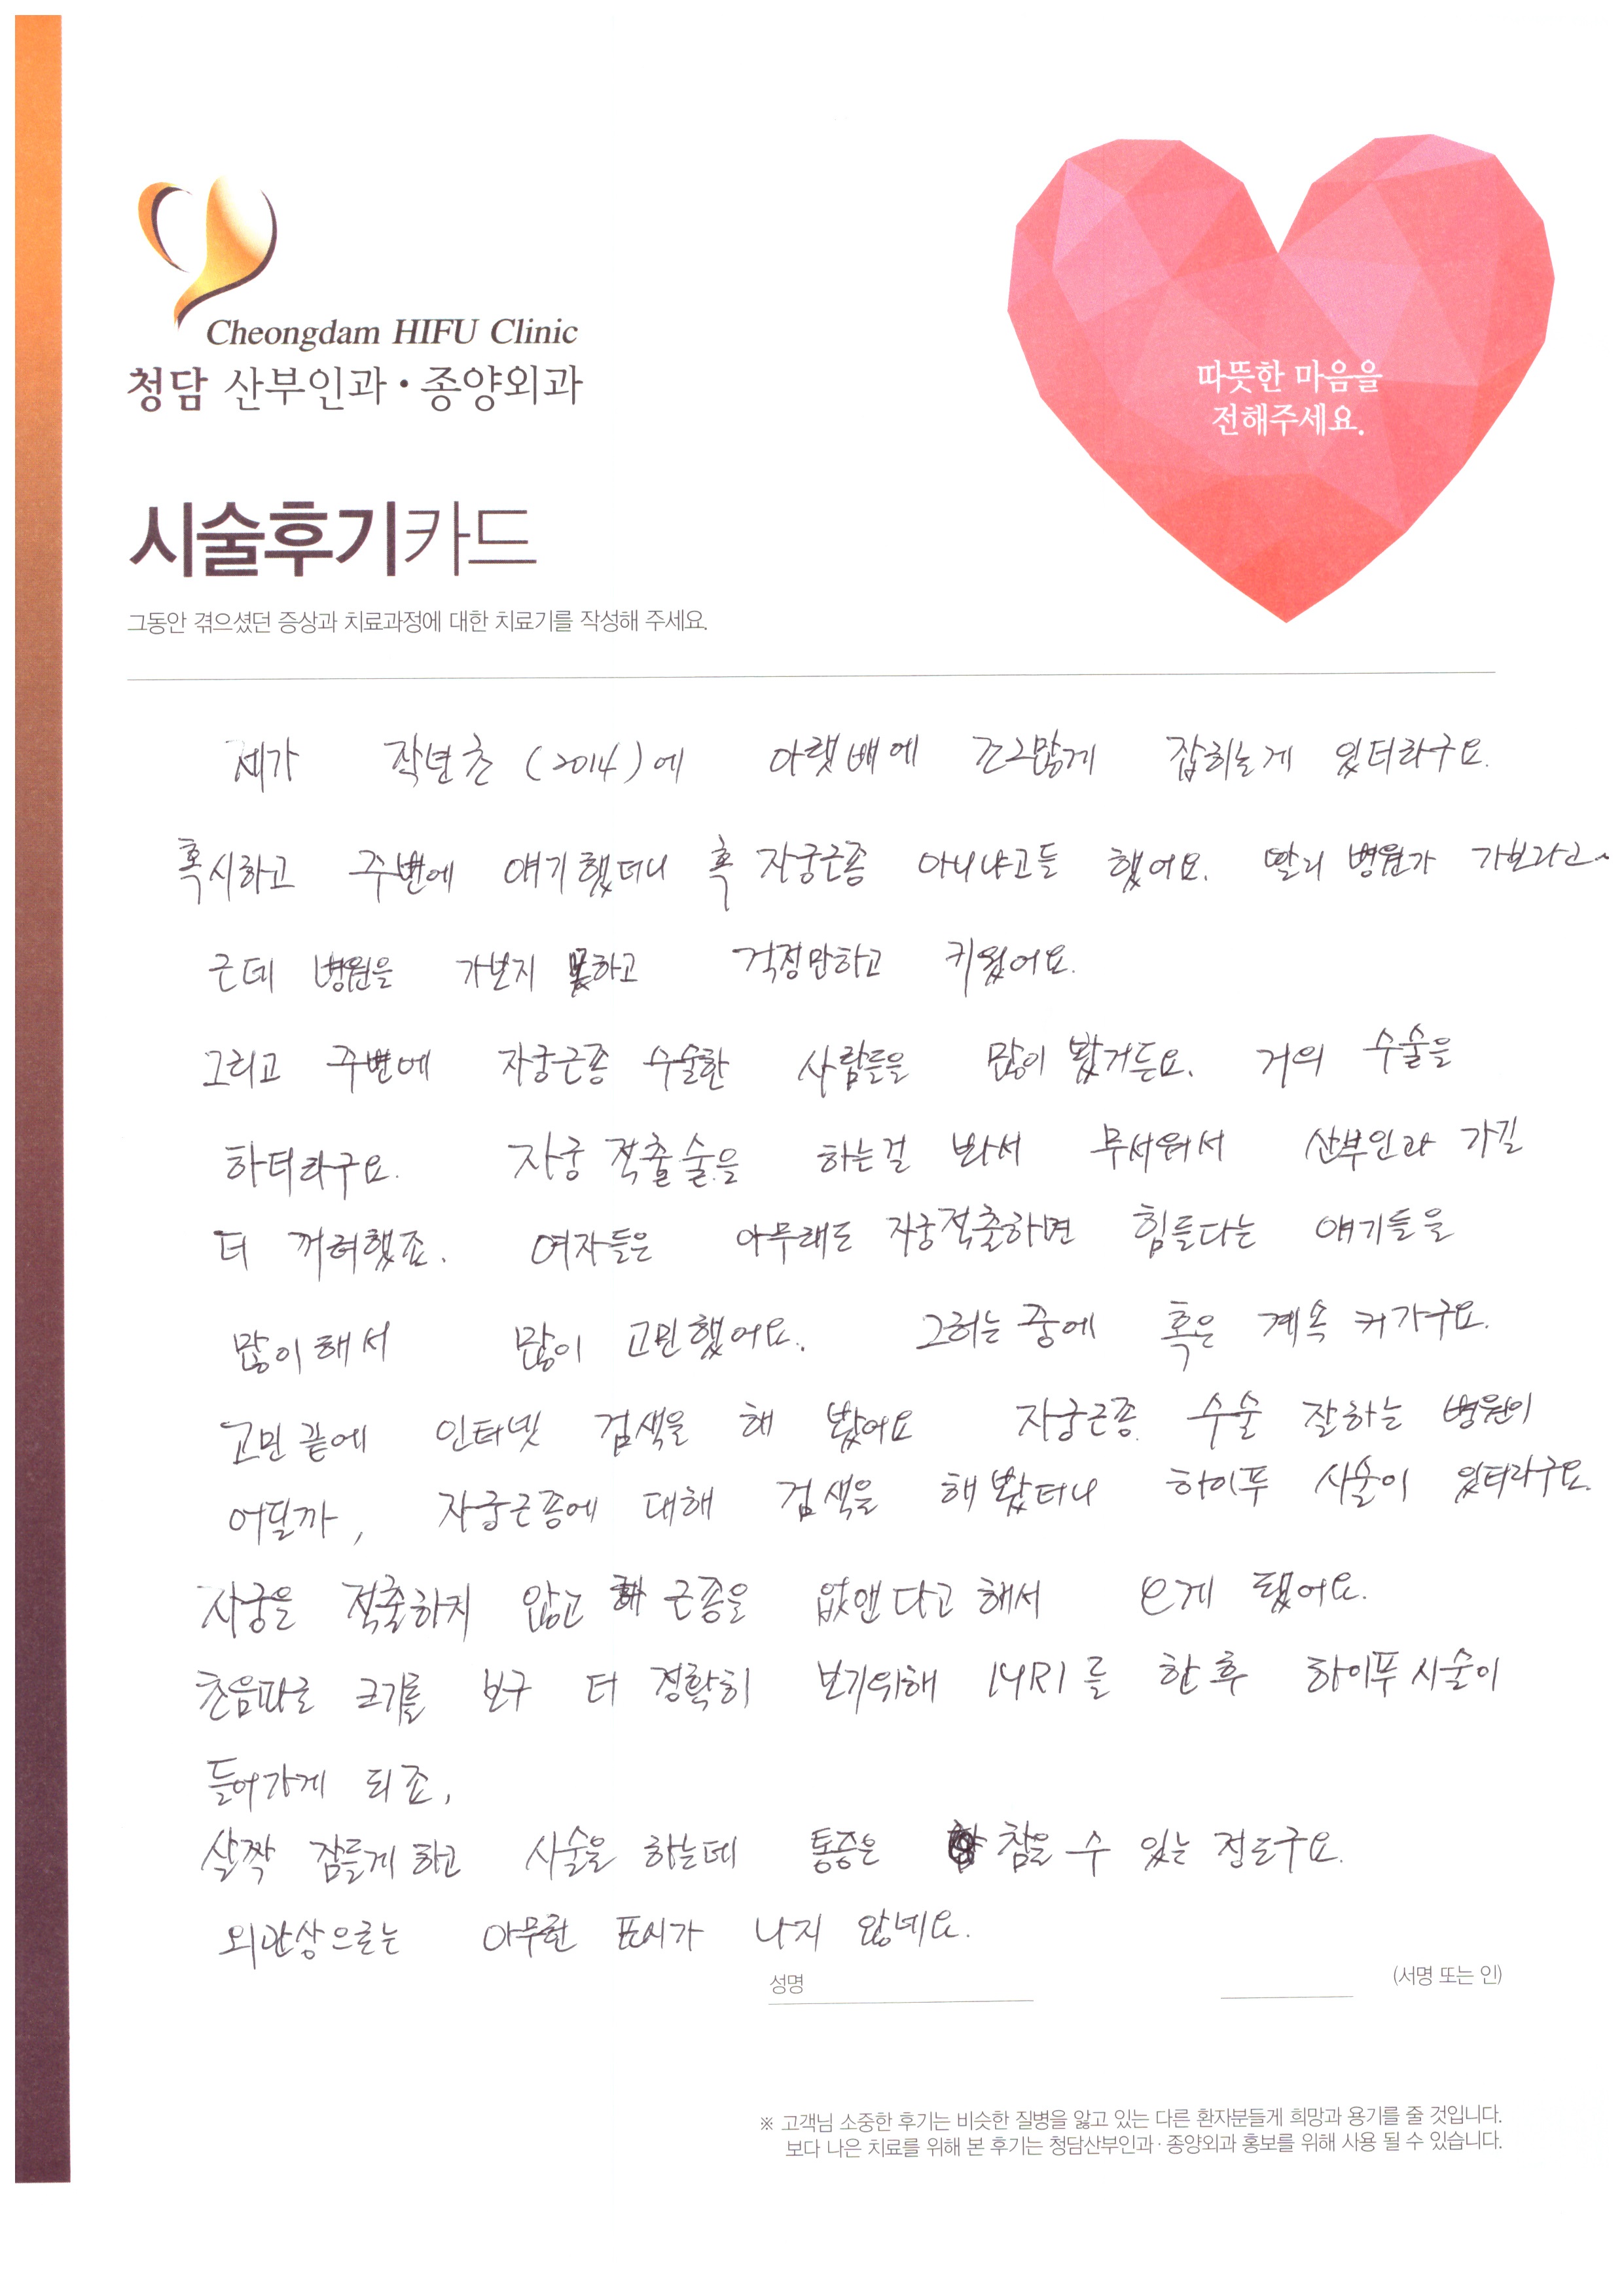 Cheongdam HIFU Clinic
청담 산부인과 · 종양외과
따뜻한 마음을
전해주세요.
시술후기카드
그동안 겪으셨던 증상과 치료과정에 대한 치료기를 작성해 주세요.
제가 작년초 (2014)에 아랫배에 조그맣게 잡히는게 있더라구요.
혹시하고 주변에 얘기했더니 혹 자궁근종 아니냐고들 했어요. 빨리 병원가 가보라고~
근데 병원을 가보지 못하고 걱정만하고 키웠어요.
그리고 주변에 자궁근종 수술한 사람들을 많이 봤거든요. 거의 수술을
하더라구요. 자궁 적출술을 하는걸 봐서 무서워서 산부인과 가길
더 꺼려했죠. 여자들은 아무래도 자궁적출하면 힘들다는 얘기들을
많이해서 많이 고민했어요. 그러는 중에 혹은 계속 커가구요.
고민끝에 인터넷 검색을 해 봤어요 자궁근종 수술 잘하는 병원이
어딜까, 자궁근종에 대해 검색을 해봤더니 하이푸 시술이 있더라구요.
자궁을 적출하지 않고 근종을 없앤다고 해서 오게 됐어요.
초음파로 크기를 보구 더 정확히 보기위해 MRI를 한후 하이푸시술이
들어가게 되죠,
살짝 잠들게하고 시술을 하는데 통증은 참을 수 있는 정도구요.
외관상으로는 아무런 표시가 나지 않네요.
성명 (서명 또는 인)
※ 고객님 소중한 후기는 비슷한 질병을 앓고 있는 다른 환자분들게 희망과 용기를 줄 것입니다.
보다 나은 치료를 위해 본 후기는 청담산부인과 · 종양외과 홍보를 위해 사용 될 수 있습니다.